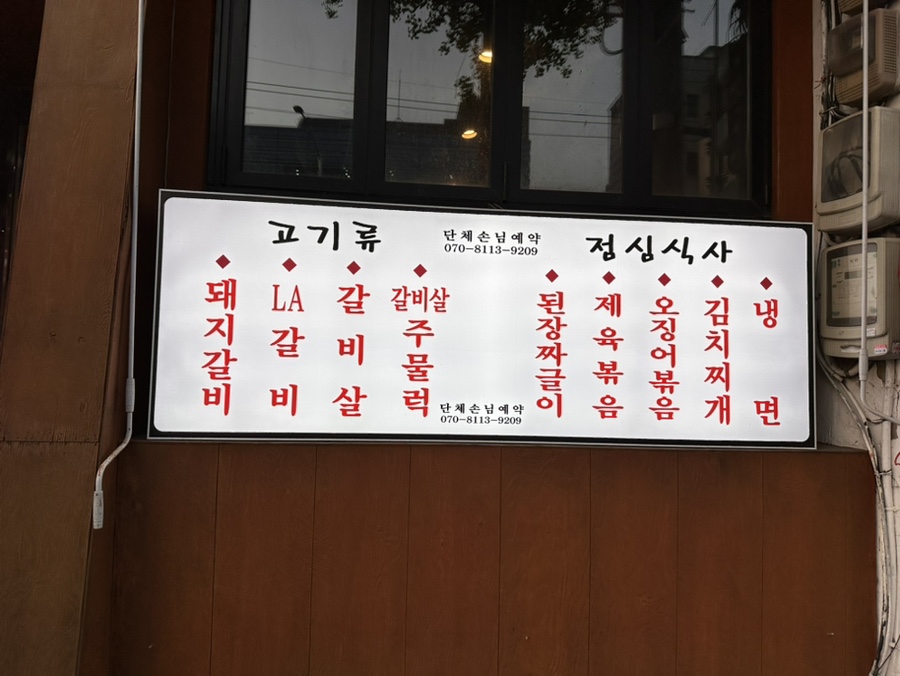 고기류
단체손님예약
070-8113-9209
점심식사
돼지갈비
LA갈비
갈비살
갈비살주물럭
된장짜글이
제육볶음
오징어볶음
김치찌개
냉면
단체손님예약
070-8113-9209